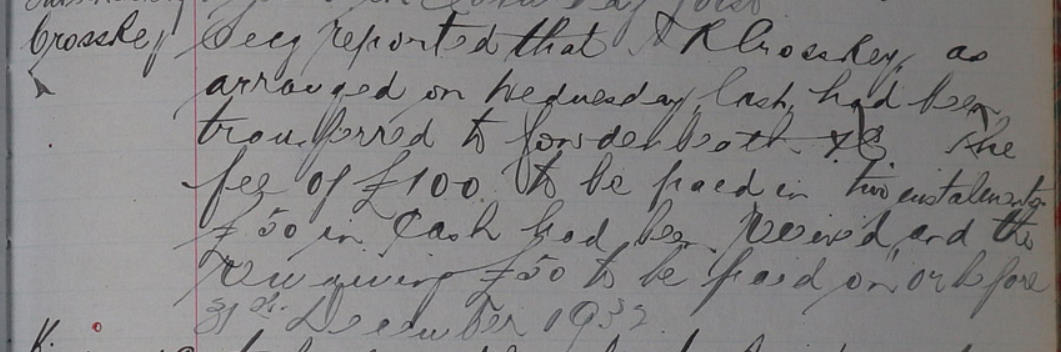 Crosskey Secy reported that A R Crosskey, as
arranged on Wednesday last, had been
transferred to Cowdenbeath F.C. The
fee of £100 to be paid in two instalments
£50 in Cash had been received and the
remaining £50 to be paid on or before
31st December 1932.
K.